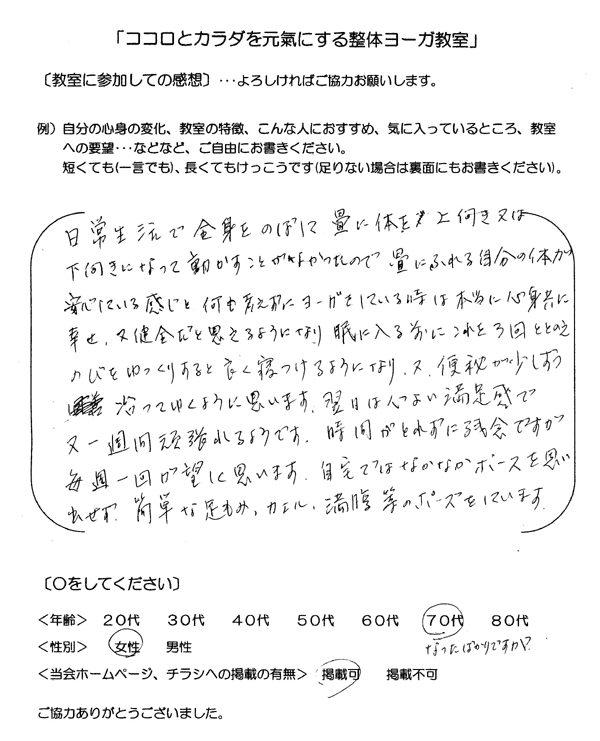 「ココロとカラダを元氣にする整体ヨーガ教室」
〔教室に参加しての感想〕･･･よろしければご協力お願いします。
例）自分の心身の変化、教室の特徴、こんな人におすすめ、気に入っているところ、教室
への要望･･･などなど、ご自由にお書きください。
短くても(一言でも)、長くてもけっこうです(足りない場合は裏面にもお書きください)。
日常生活で全身をのばして畳に体を上向き又は
下向きになって動かすことがなかったので畳にふれる自分の体が
安心している感じと何も考えずにヨーガをしている時は本当に心身共に
幸せ、又健全だと思えるようになり眠に入る前にこれを3回ととのえ
のびをゆっくりすると良く寝つけるようになり、又、便秘が少しずつ
治ってゆくように思います。翌日は心よい満足感で
又一週間頑張れるようです。時間がとれずに残念ですが
毎週一回が望しく思います。自宅ではなかなかポーズを思い
出せず、簡単な足もみ、カエル、満腹等のポーズをしています。
〔○をしてください〕
＜年齢＞ 20代 30代 40代 50代 60代 70代 80代
なったばかりですが?
＜性別＞ 女性 男性
＜当会ホームページ、チラシへの掲載の有無＞ 掲載可 掲載不可
ご協力ありがとうございました。